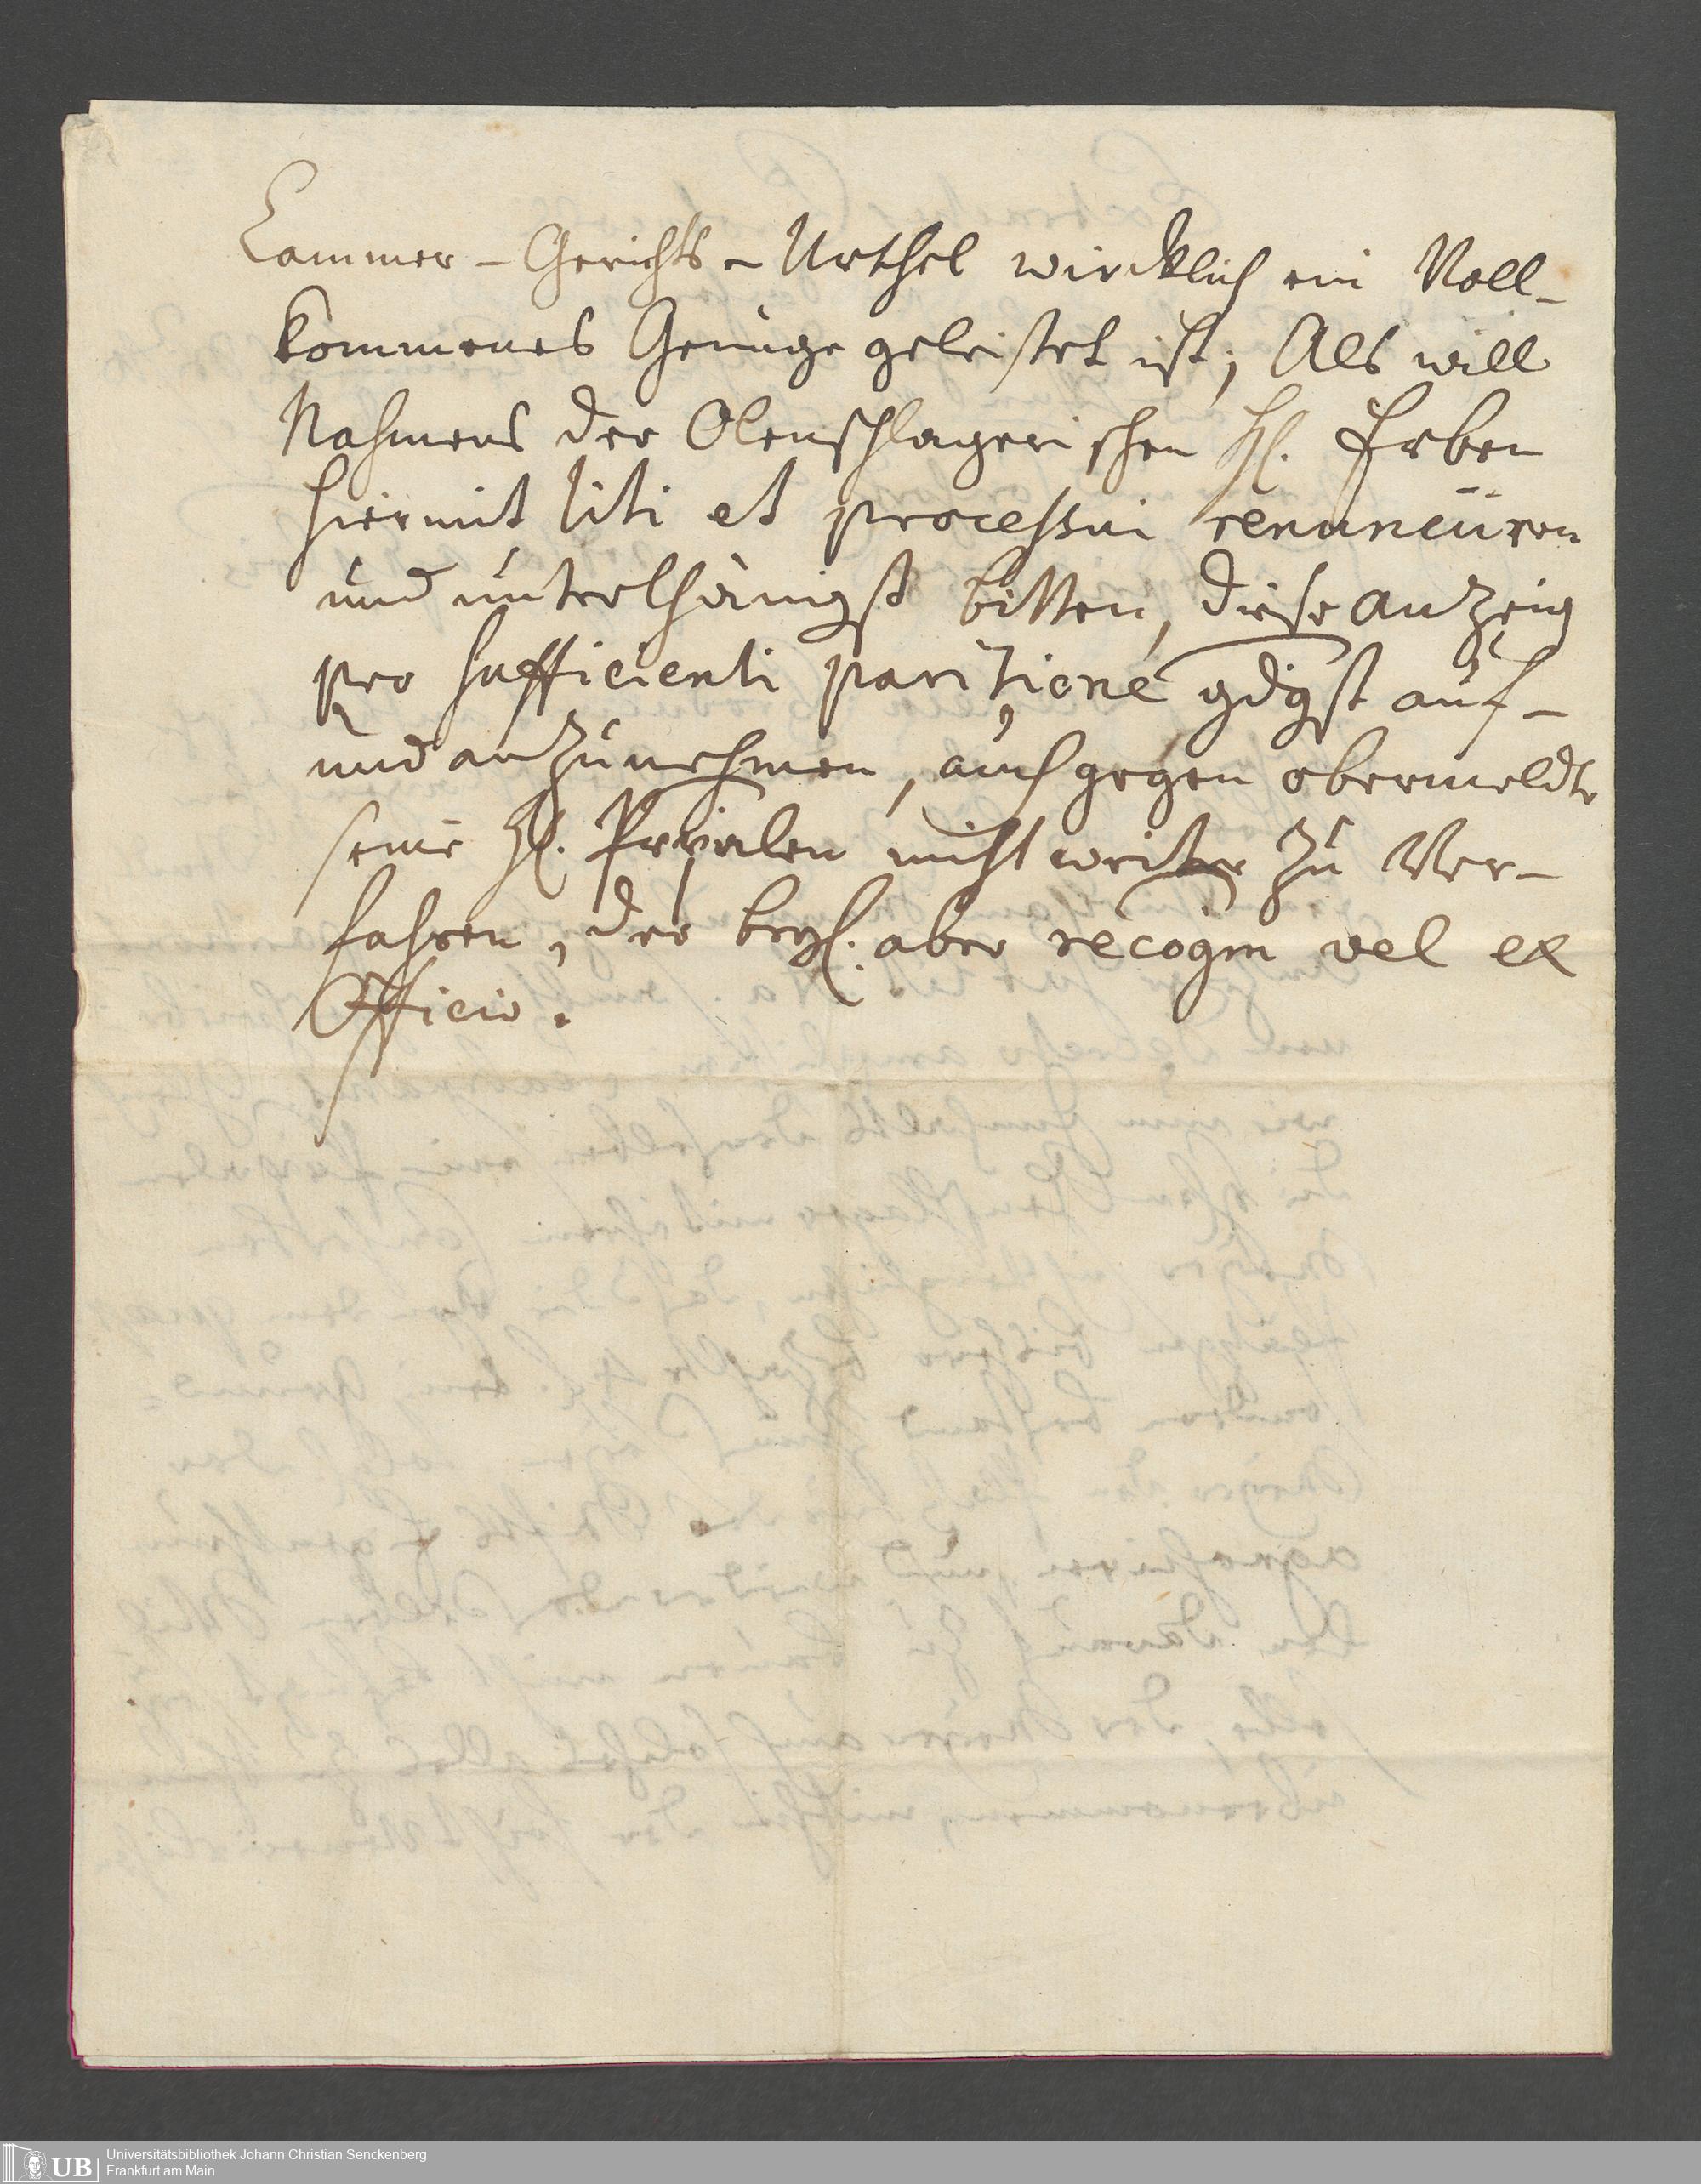 Cammer-Gerichts-Urthel wircklich ein Voll-
kommenes Genüge geleistet ist; Als will
Nahmens der Olenschlagerischen H. Erben
hiermit liti et processui renunciiren
und unterthänigst bitten, diese anzeig
pro sufficienti paritione gdgst auf-
und anzunehmen, auch gegen obermeldte
seine H. Prpalen nicht weiter zu Ver-
fahren, der beyl. aber recogm vel ex
Officio.
UB Universitätsbibliothek Johann Christian Senckenberg
Frankfurt am Main